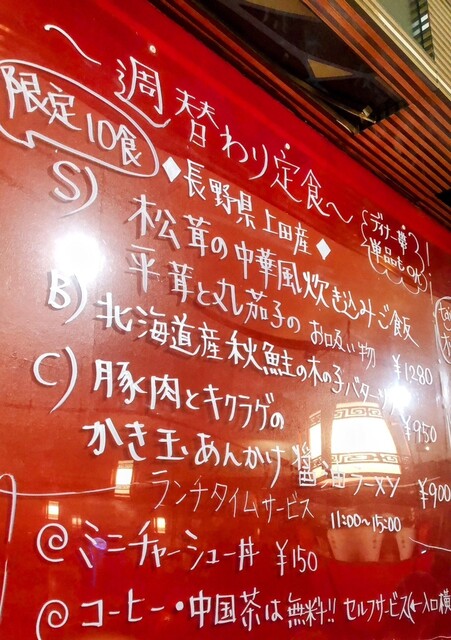 〜週替わり定食〜
限定10食
S) ◆長野県上田産◆
ディナー時単品もOK!
松茸の中華風炊き込みご飯
平茸と丸茄子のお吸い物 ¥1280
B) 北海道産秋鮭の木の子バター ¥950
C) 豚肉とキクラゲの
かき玉あんかけ醤油ラーメン ¥900
ランチタイムサービス 11:00~15:00
@ミニチャーシュー丼 ¥150
@コーヒー・中国茶は無料!! セルフサービス(←入口横